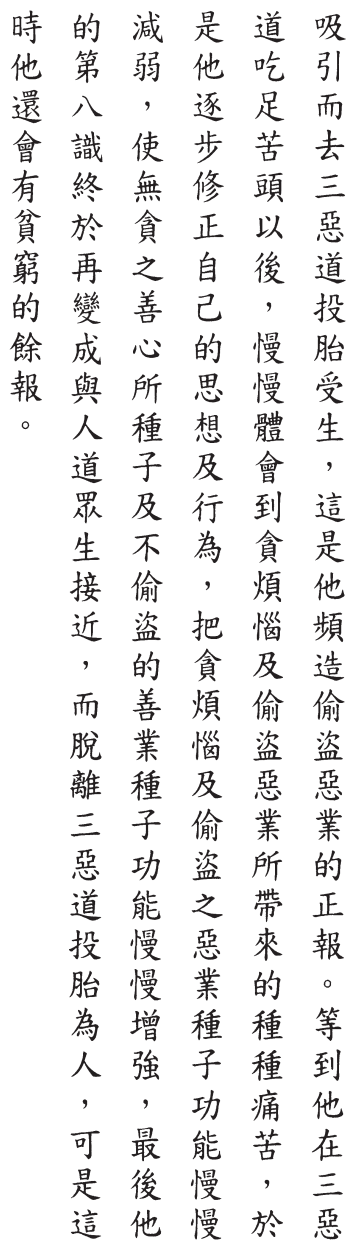 吸引而去三惡道投胎受生，這是他頻造偷盜惡業的正報。等到他在三惡
道吃足苦頭以後，慢慢體會到貪煩惱及偷盜惡業所帶來的種種痛苦，於
是他逐步修正自己的思想及行為，把貪煩惱及偷盜之惡業種子功能慢慢
減弱，使無貪之善心所種子及不偷盜的善業種子功能慢慢增強，最後他
的第八識終於再變成與人道眾生接近，而脫離三惡道投胎為人，可是這
時他還會有貧窮的餘報。